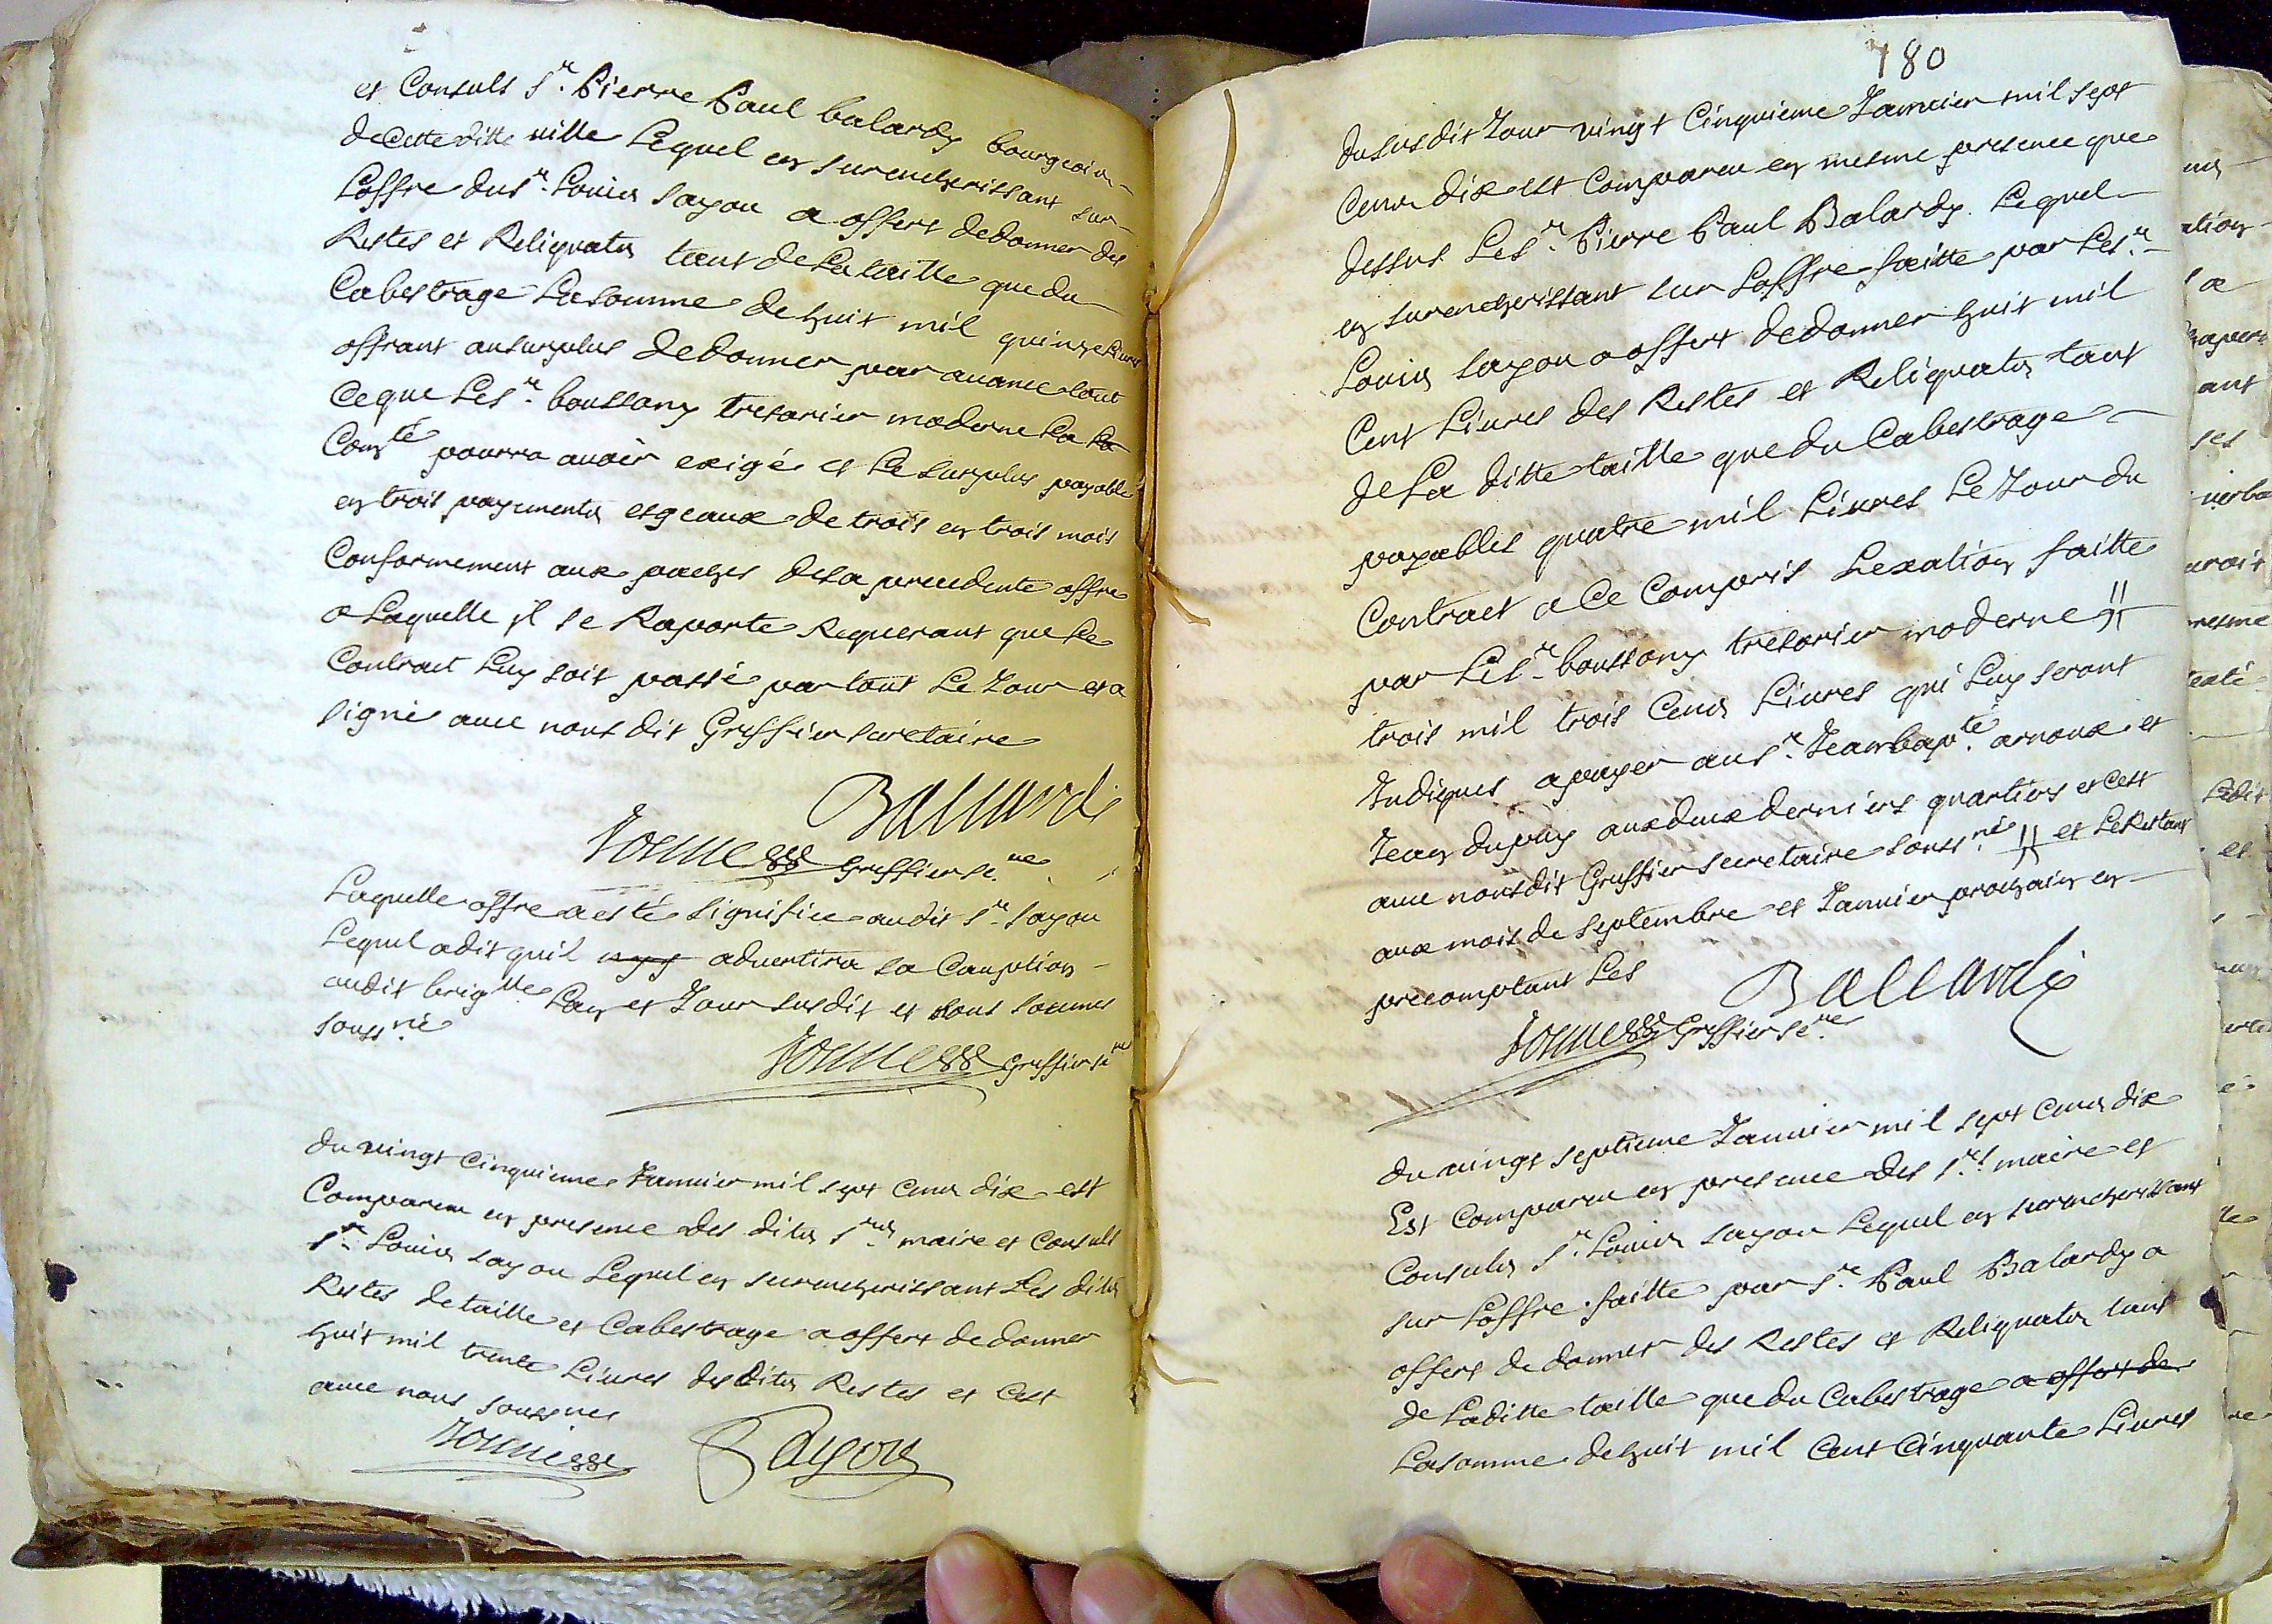 et Consuls Sr. Pierre Paul balardy bourgeois
de Cette ditte ville Lequel en surencherissant sur
Loffre du Sr. Louis sayou a offert de donner des
Restes et Reliquats tant de La taille que du
Cabestrage La somme de huit mil quinze Livres
offrant au surplus de donner par avance tout
Ce que Le Sr. boussany tresorier moderne La
Comté pourra avoir exigé et Le surplus payable
en trois payements esgeaux de trois en trois mois
Conformement aux paches de La precedente offre
a Laquelle il se Raporte Requerant que Le
Contract Luy soit passé par tout Le Jour et a
signé avec nous dit Greffier secretaire
Ballardi
Greffier se.re
Laquelle offre a esté signifiée audit Sr. sayou
Lequel a dit quil advertira sa Cauption
audit brig.lles Lan et Jour susdit et nous sommes
souss.né
Greffier se.re
du vingt Cinquieme Janvier mil sept Cens dix est
Comparu en presence des dits Srs. maire et Consuls
Sr. Louis sayou Lequel en surencherissant Les dits
Restes de taille et Cabestrage a offert de donner
huit mil trente Livres des dits Restes et Cest
avec nous soussignes
Sayou
780
du susdit Jour vingt Cinquieme Janvier mil sept
Cens dix est Comparu en mesme presence que
dessus Le Sr. Pierre Paul Balardy Lequel
en surencherissant sur Loffre faitte par Le Sr.
Louis sayou a offert de donner huit mil
Cent Livres des Restes et Reliquats tant
de La ditte taille que du Cabestrage
payables quatre mil Livres Le Jour du
Contract a Ce Compris Lexation faitte
par Le Sr. boussany tresorier moderne
trois mil trois Cens Livres qui Luy seront
Indiques a payer au Sr. Jean bap.te arnoux et
Jean dupuy aux deux derniers quartiers et Cest
avec nous dit Greffier secretaire souss.né et Le Restant
aux mois de septembre et Janvier prochain en
precomptant Les
Ballardi
Greffier se.re
du vingt septieme Janvier mil sept Cens dix
Est Comparu en presence des Srs. maire et
Consuls Sr. Louis sayou Lequel en surencherissant
sur Loffre faitte par Sr. Paul Balardy a
offert de donner des Restes et Reliquats tant
de La ditte taille que du Cabestrage a offert de
La somme de huit mil Cent Cinquante Livres